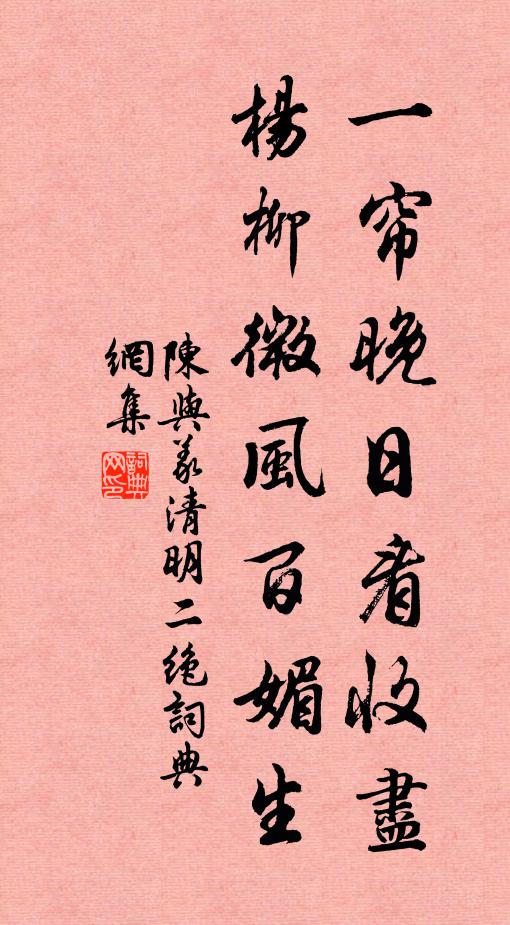 一帘晚日看收盡
楊柳微風百媚生
陳與義清明二絕詞典
網集
詞典網印